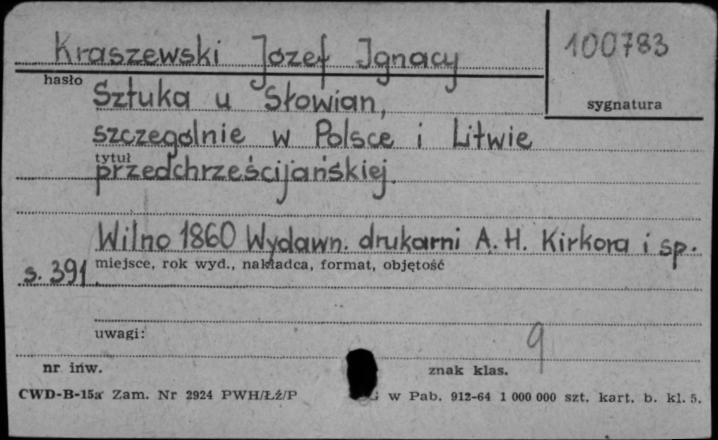 Kraszewski Józef Ignacy
100783
hasło
sygnatura
Sztuka u Słowian,
szczególnie w Polsce i Litwie
tytuł
przedchrześcijańskiej.
Wilno 1860 Wydawn. drukarni A. H. Kirkora i sp.
miejsce, rok wyd., nakładca, format, objętość
s. 391.
uwagi:
9
nr inw.
znak klas.
CWD-B-15a Zam. Nr 2924 PWH/Łź/P
w Pab. 912-64 1 000 000 szt. kart. b. kl. 5.